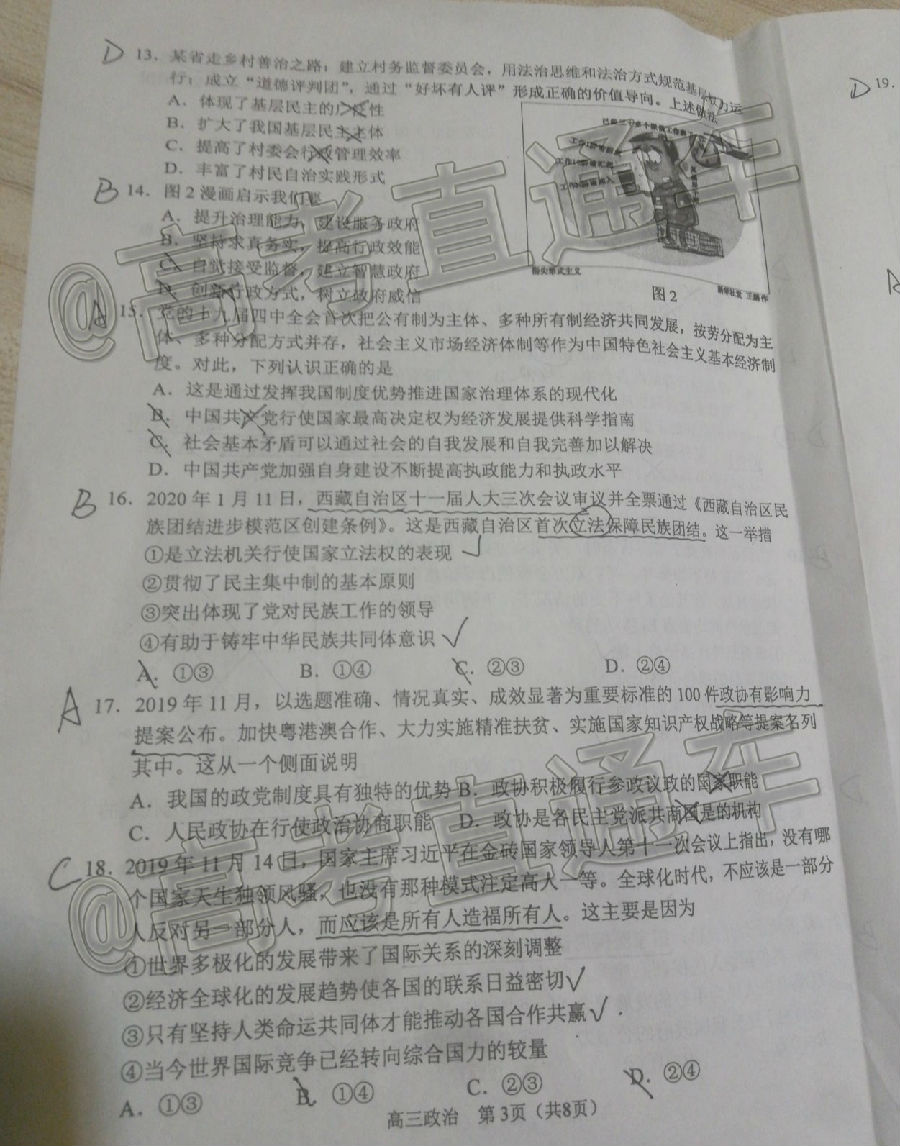 D 13. 某省走乡村善治之路：建立村务监督委员会，用法治思维和法治方式规范基层权力运
行；成立“道德评判团”，通过“好坏有人评”形成正确的价值导向。上述做法
A. 体现了基层民主的广泛性
B. 扩大了我国基层民主主体
C. 提高了村委会行政管理效率
D. 丰富了村民自治实践形式
指尖形式主义
新华社发 王鹏作
图2
B 14. 图2漫画启示我们要
A. 提升治理能力，建设服务政府
B. 坚持求真务实，提高行政效能
C. 自觉接受监督，建立智慧政府
D. 创新行政方式，树立政府威信
A 15. 党的十九届四中全会首次把公有制为主体、多种所有制经济共同发展，按劳分配为主
体、多种分配方式并存，社会主义市场经济体制等作为中国特色社会主义基本经济制
度。对此，下列认识正确的是
A. 这是通过发挥我国制度优势推进国家治理体系的现代化
B. 中国共产党行使国家最高决定权为经济发展提供科学指南
C. 社会基本矛盾可以通过社会的自我发展和自我完善加以解决
D. 中国共产党加强自身建设不断提高执政能力和执政水平
B 16. 2020年1月11日，西藏自治区十一届人大三次会议审议并全票通过《西藏自治区民
族团结进步模范区创建条例》。这是西藏自治区首次立法保障民族团结。这一举措
①是立法机关行使国家立法权的表现
②贯彻了民主集中制的基本原则
③突出体现了党对民族工作的领导
④有助于铸牢中华民族共同体意识
A. ①③ B. ①④ C. ②③ D. ②④
A 17. 2019年11月，以选题准确、情况真实、成效显著为重要标准的100件政协有影响力
提案公布。加快粤港澳合作、大力实施精准扶贫、实施国家知识产权战略等提案名列
其中。这从一个侧面说明
A. 我国的政党制度具有独特的优势 B. 政协积极履行参政议政的国家职能
C. 人民政协在行使政治协商职能 D. 政协是各民主党派共商国是的机构
C 18. 2019年11月14日，国家主席习近平在金砖国家领导人第十一次会议上指出，没有哪
个国家天生独领风骚，也没有那种模式注定高人一等。全球化时代，不应该是一部分
人反对另一部分人，而应该是所有人造福所有人。这主要是因为
①世界多极化的发展带来了国际关系的深刻调整
②经济全球化的发展趋势使各国的联系日益密切
③只有坚持人类命运共同体才能推动各国合作共赢
④当今世界国际竞争已经转向综合国力的较量
A. ①③ B. ①④ C. ②③ D. ②④
高三政治 第3页（共8页）
D 19.
A
@高考直通车
@高考直通车